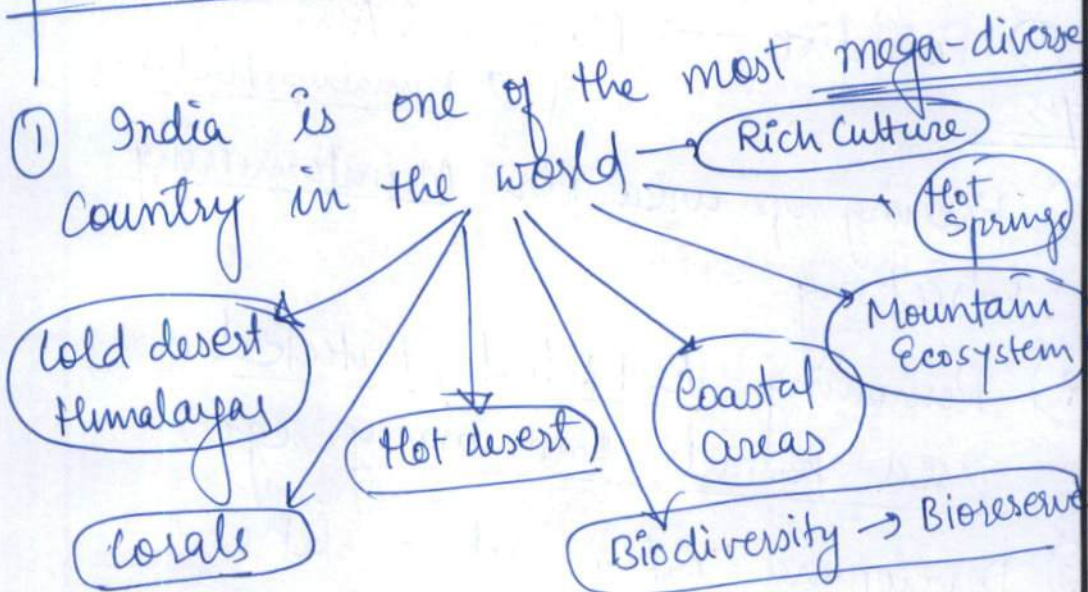 ① India is one of the most mega-diverse
Country in the world → Rich Culture
Hot
Springs
Mountain
Ecosystem
Cold desert
Himalayas
Hot desert
Coastal
areas
Corals
Biodiversity → Bioreserve